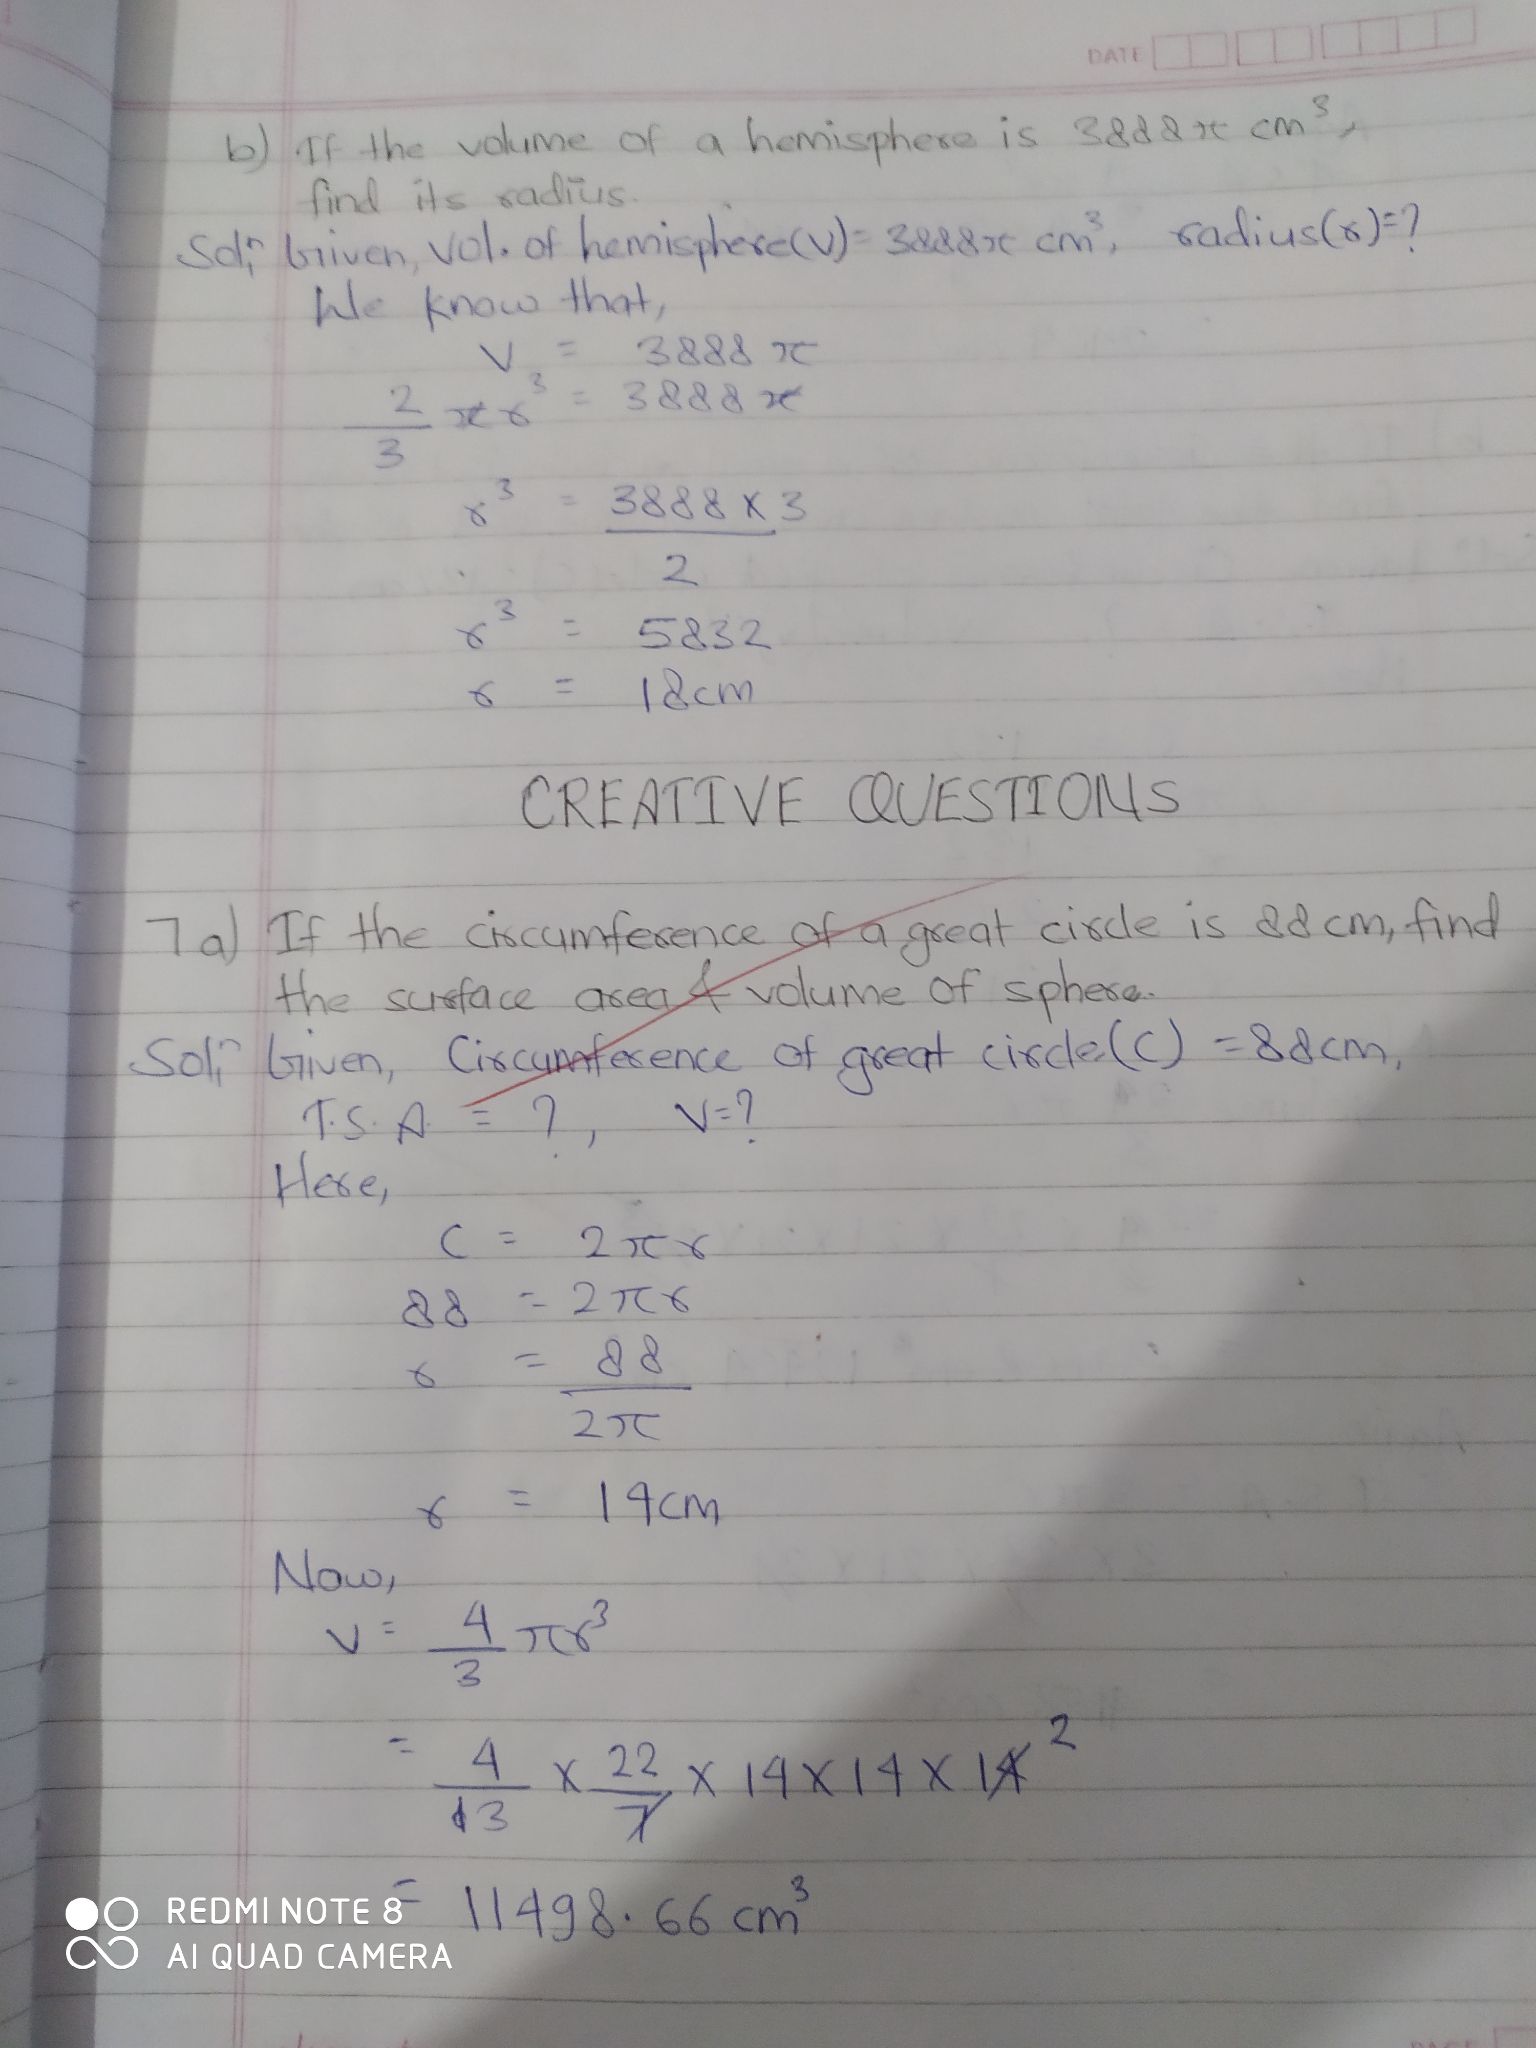 DATE
b) If the volume of a hemisphere is 3888π cm³,
find its radius.
Solⁿ; Given, Vol. of hemisphere(V)= 3888π cm³, radius(r)=?
We know that,
V = 3888 π
2/3 πr³ = 3888 π
r³ = 3888 x 3 / 2
r³ = 5832
r = 18cm
CREATIVE QUESTIONS
7 a) If the circumference of a great circle is 88cm, find
the surface area & volume of sphere.
Solⁿ; Given, Circumference of great circle(C) = 88cm,
T.S.A. = ?, V=?
Here,
C = 2πr
88 = 2πr
r = 88 / 2π
r = 14cm
Now,
V = 4/3 πr³
= 4/3 x 22/7 x 14 x 14 x 14 2
= 11498.66 cm³
REDMI NOTE 8
AI QUAD CAMERA
PAGE